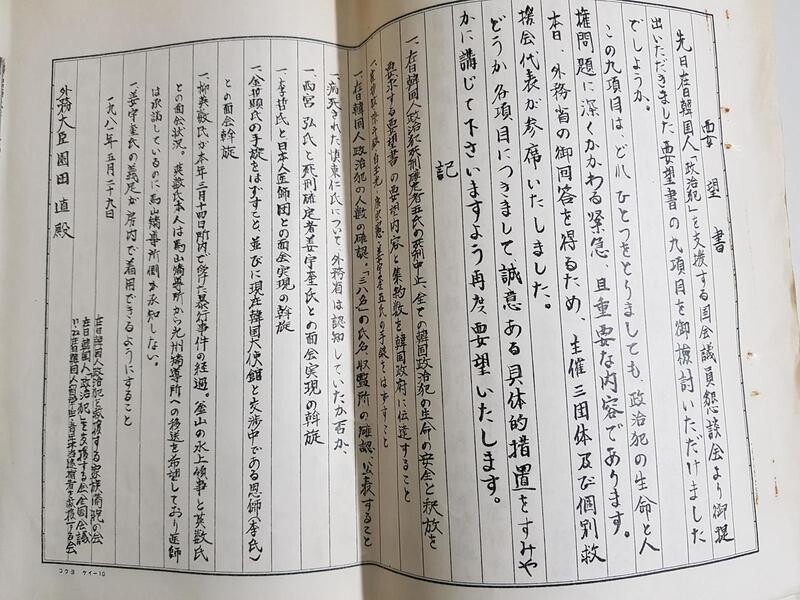 要望書
先日在日韓国人「政治犯」を支援する国会議員懇談会より御提
出いただきました要望書の九項目を御検討いただけました
でしょうか。
この九項目は、どれひとつをとりましても、政治犯の生命と人
権問題に深くかかわる緊急、且重要な内容であります。
本日、外務省の御回答を得るため、主催三団体及び個別救
援会代表が参席いたしました。
どうか各項目につきまして誠意ある具体的措置をすみや
かに講じて下さいますよう再度要望いたします。
記
一、在日韓国人政治犯死刑確定者五氏の死刑中止、全ての韓国政治犯の生命の安全と釈放を
要求する要望書の内容と集約数を韓国政府に伝達すること
五氏の手錠をはずすこと
一、在日韓国人政治犯の人数の確認。「三八名」の氏名、収監所の確認、公表すること
一、病死された慎東仁氏について、外務省は認知していたか否か、
一、李哲氏と日本人医師団との面会実現の斡旋
一、西宮弘氏と死刑確定者姜宇奎氏との面会実現の斡旋
一、金哲顕氏の手錠をはずすこと、並びに現在韓国大使館と交渉中である恩師(李氏)
との面会斡旋
一、柳英数氏が本年三月十四日所内で受けた暴行事件の経過。釜山の水上領事と英数氏
との面会状況。英数氏本人は馬山矯導所から光州矯導所への移送を希望しており医師
は承諾しているのに馬山矯導所側が承知しない。
一、姜宇奎氏の義足が房内で着用できるようにすること
一九八一年五月二十九日
在日韓国人「政治犯」を救援する家族・僑胞の会
在日韓国人「政治犯」を支援する会全国会議
外務大臣園田直殿
コクヨ ケイー10